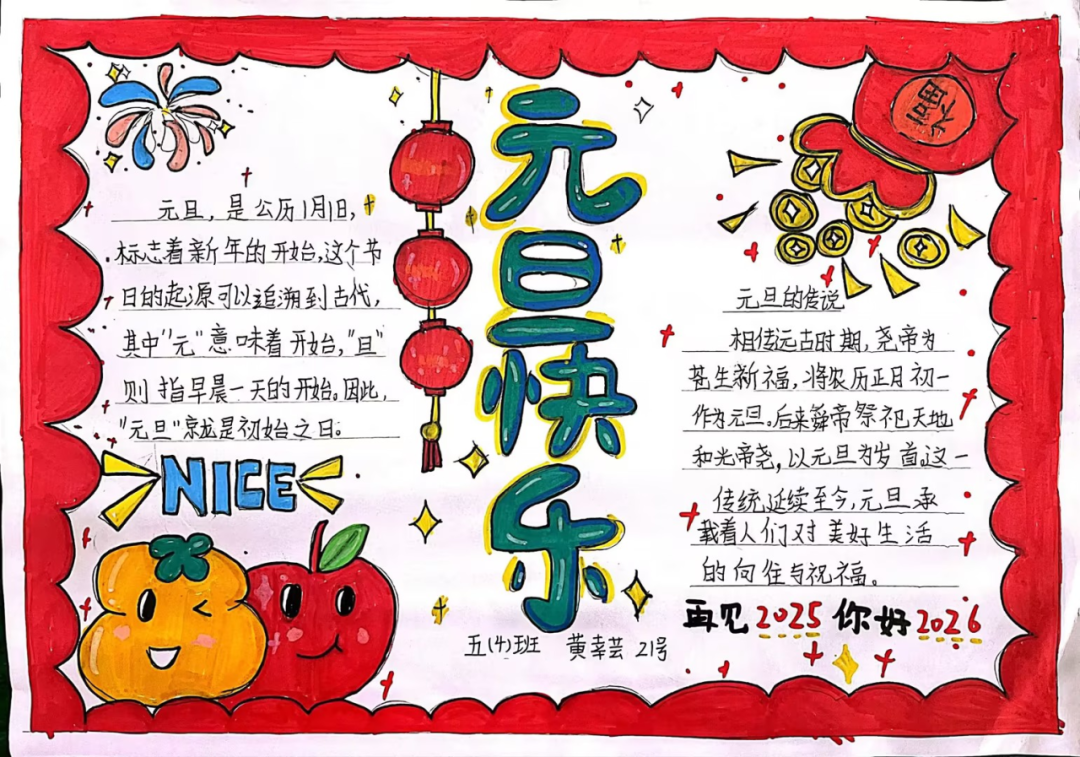 元旦快乐
福
元旦，是公历1月1日，
标志着新年的开始，这个节
日的起源可以追溯到古代，
其中"元"意味着开始，"旦"
则指早晨一天的开始。因此，
"元旦"就是初始之日。
NICE
元旦的传说
相传远古时期，尧帝为
苍生祈福，将农历正月初一
作为元旦。后来舜帝祭祀天地
和先帝尧，以元旦为岁首。这一
传统延续至今，元旦承
载着人们对美好生活
的向往与祝福。
再见2025 你好2026
五(4)班 黄幸芸 21号